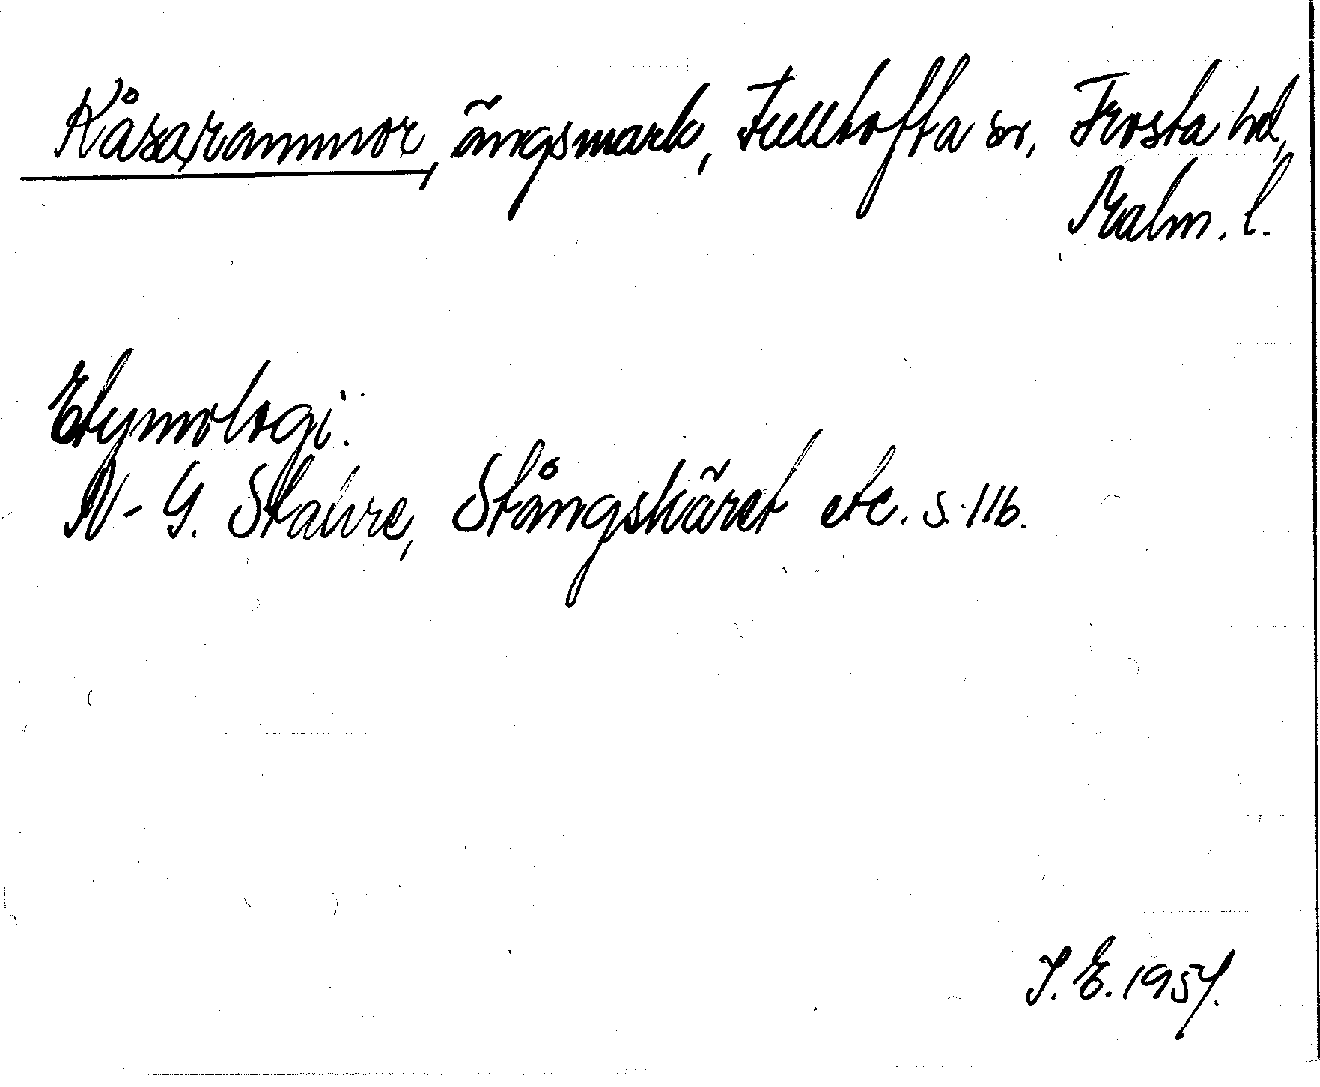 Kåsarammor, ängsmark, Fulltofta sn, Frosta hd,
Malm. l.
Etymologi:
N-G. Stahre, Stångskäret etc. s. 116.
I. E. 1957.